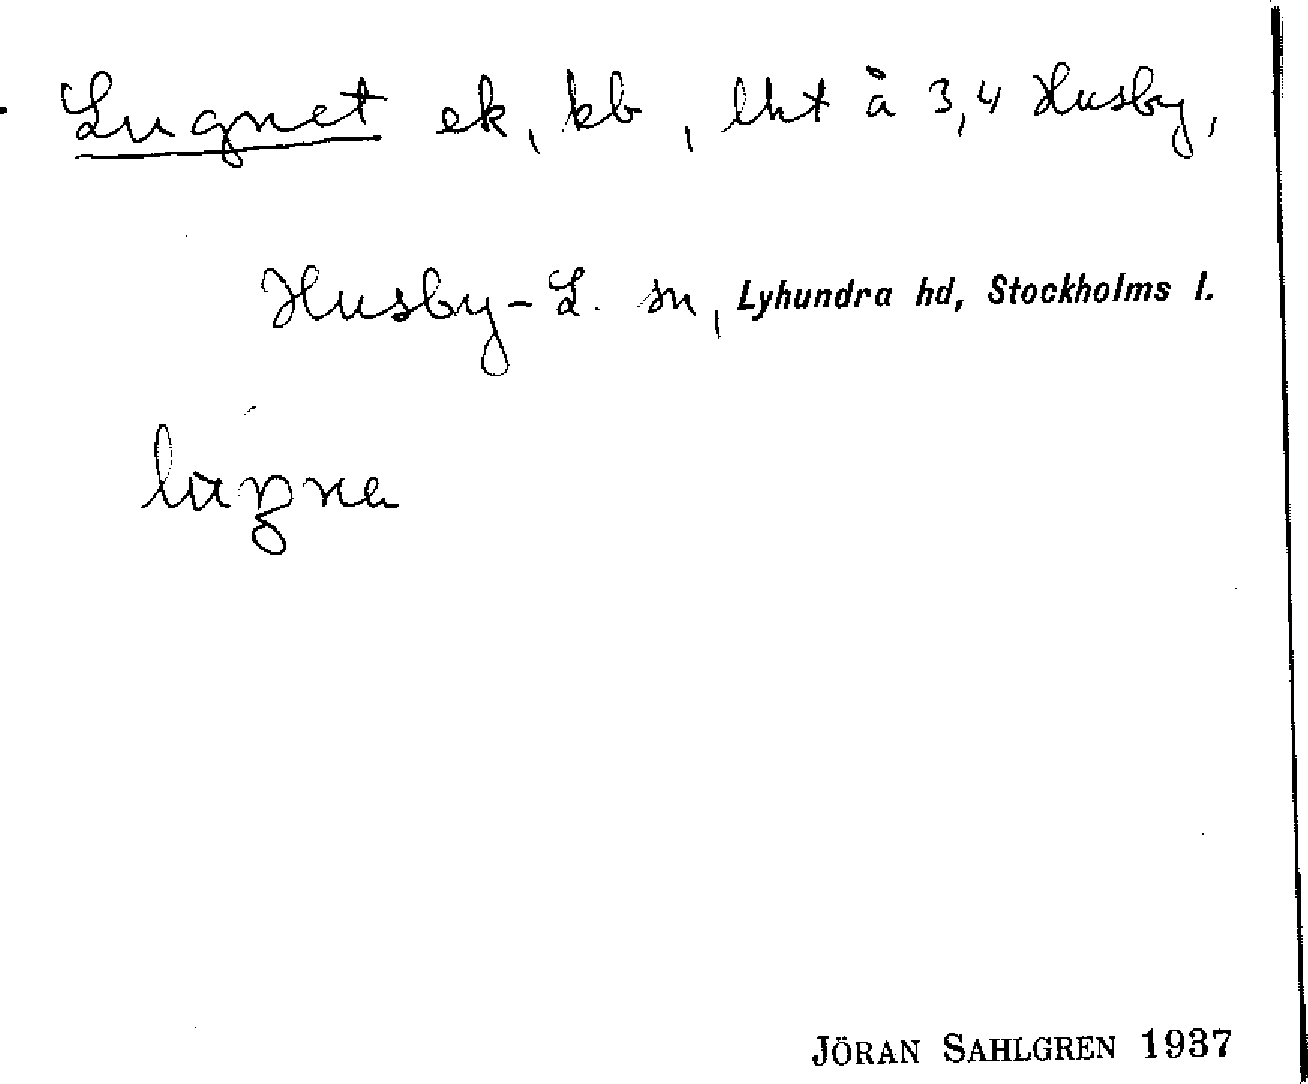 Lugnet ek, kb, lht å 3,4 Husby,
Husby-L. sn, Lyhundra hd, Stockholms l.
JÖRAN SAHLGREN 1937